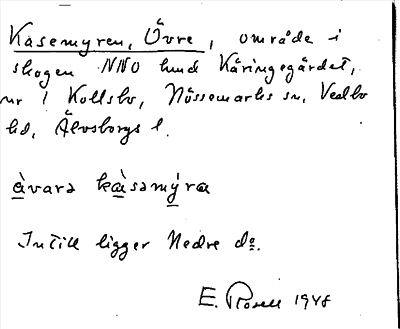 Kasemyren, Övre, område i
skogen NNO hund Käringegärdet,
nr 1 Kollsbo, Nössemarks sn, Vedbo
hd, Älvsborgs l.
àvarə kàsəmýra
Intill ligger Nedre do.
E. Rosell 1948